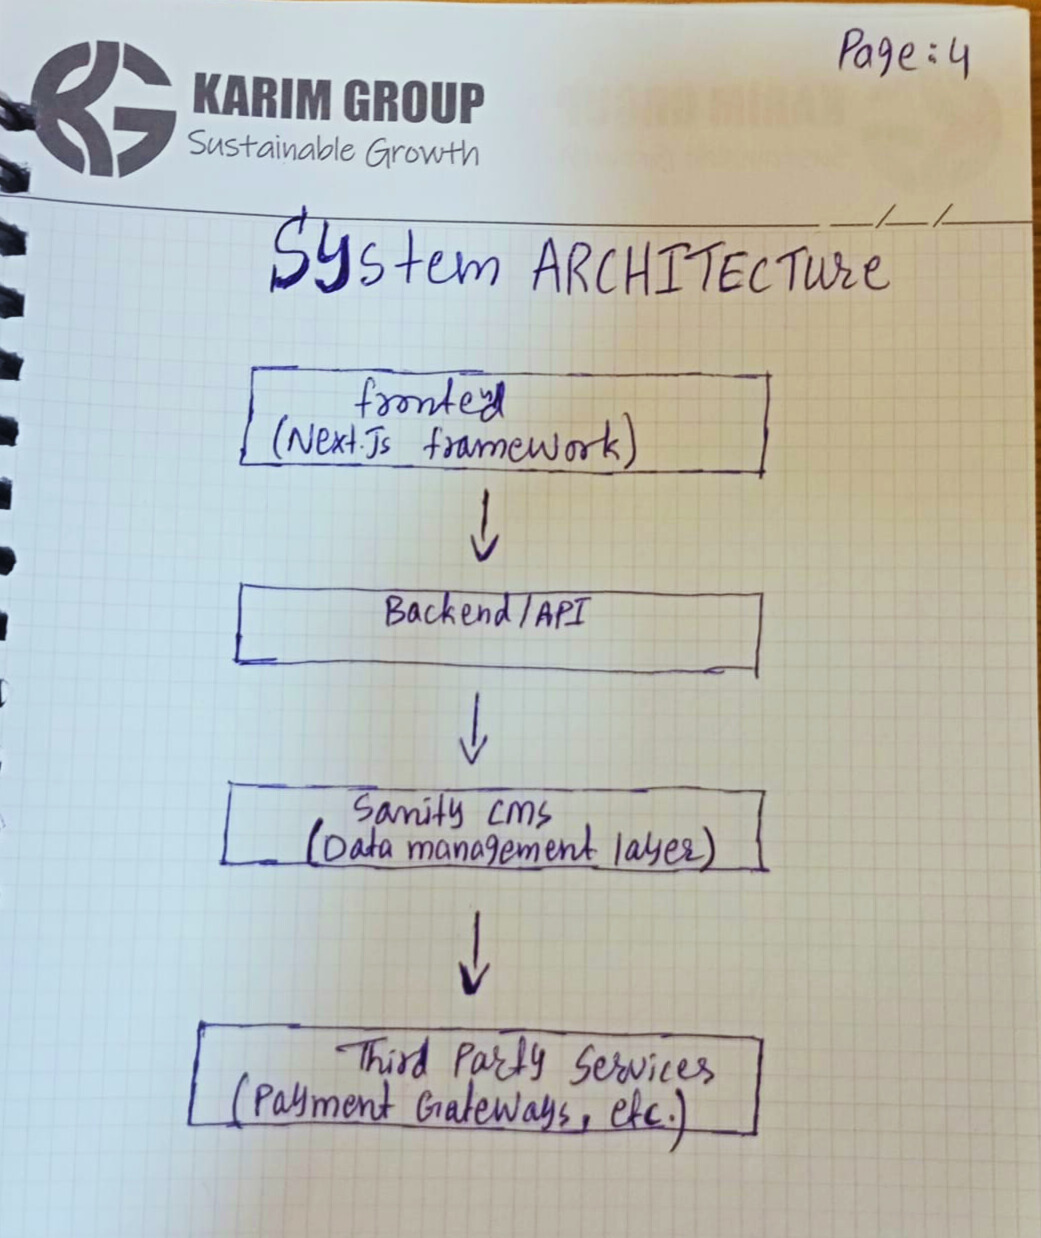 Page: 4
KARIM GROUP
Sustainable Growth
System ARCHITECTure
frontend
(Next.Js framework)
Backend/API
Sanity CMS
(Data management layer)
Third Party Services
(Payment Gateways, etc.)